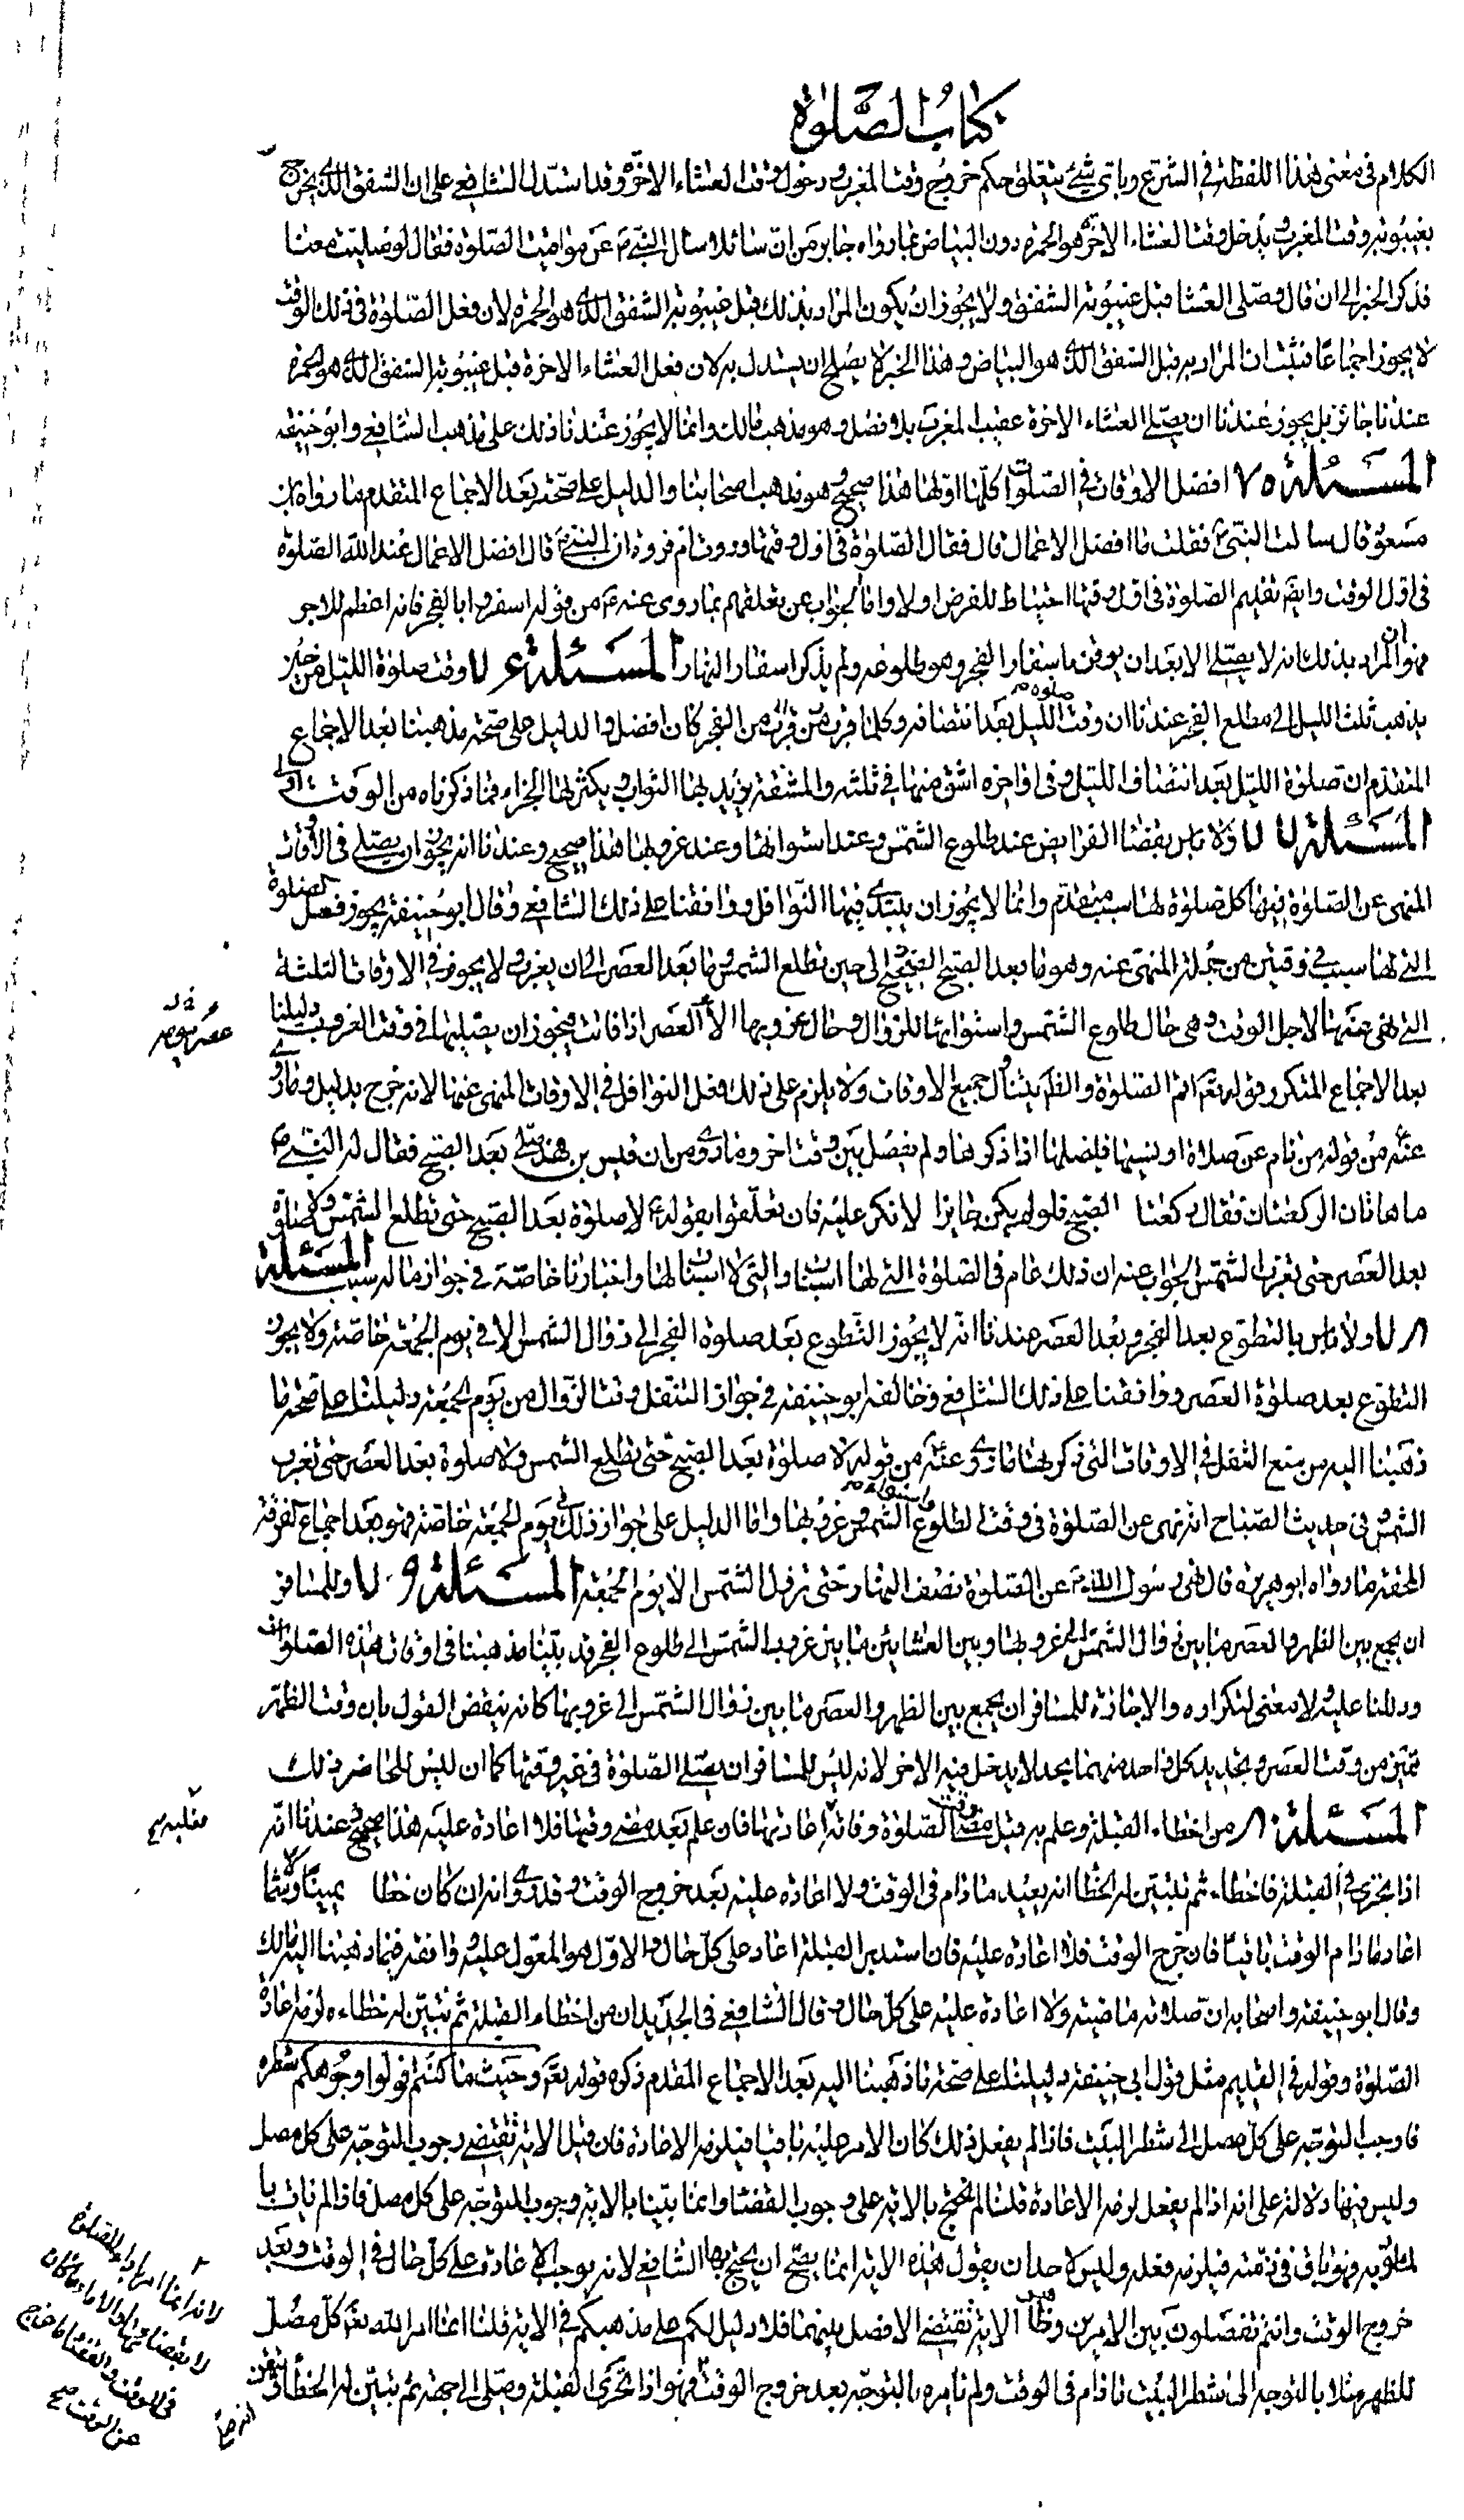 كتاب الصلوة
الكلام في معنى هذا اللفظة في الشرع وباى شئ يتعلق حكم خروج وقت المغرب ودخول وقت العشاء الاخرة وقد استدل الشافعي على ان الشفق الذي يخرج
بغيبوبته وقت المغرب ويدخل وقت العشاء الاخرة هو الحمرة دون البياض بما رواه جابر من ان سائلا سال النبي ع عن مواقيت الصلوة فقال لو صليت معنا
فذكر الخبر الى ان قال وصلى العشا قبل غيبوبة الشفق ولا يجوز ان يكون المراد بذلك قبل غيبوبة الشفق الذي هو الحمرة لان فعل الصلوة في ذلك الوقت
لا يجوز اجماعا فثبت ان المراد به قبل الشفق الذي هو البياض وهذا الخبر لا يصلح ان يستدل به لان فعل العشاء الاخرة قبل غيبوبة الشفق الذي هو الحمرة
عندنا جائز بل يجوز عندنا ان يصلي العشاء الاخرة عقيب المغرب بلا فصل وهو مذهب مالك وانما لا يجوز عندنا ذلك على مذهب الشافعي وابو حنيفة
المسئلة ٧٥ افضل الاوقات في الصلوات كلها اولها هذا صحيح وهو مذهب اصحابنا والدليل على صحته بعد الاجماع المتقدم ما رواه ابن
مسعود قال سالت النبي ع فقلت ما افضل الاعمال قال فقال الصلوة في اول وقتها وروت ام فروة ان النبي ع قال افضل الاعمال عند الله الصلوة
في اول الوقت وايضا تقديم الصلوة في اول وقتها احتياط للفرض اولا واما الجواب عن تعلقهم بما روى عنه ع من قوله اسفروا بالفجر فانه اعظم للاجر
فهو ان المراد بذلك انه لا يصلي الا بعد ان يوقن باسفار الفجر وهو طلوعه ولم يذكر اسفار النهار المسئلة ٧٦ وقت صلوة الليل من حين
يذهب ثلث الليل الى مطلع الفجر عندنا ان وقت صلوة الليل بعد انتصافه وكلما قرب من الفجر كان افضل والدليل على صحة مذهبنا بعد الاجماع
المتقدم ان صلوة الليل بعد انتصاف الليل وفي اواخره اشق منها في ثلثه والمشقة يزيد لها الثواب ويكثر لها الجزاء فما ذكرناه من الوقت اولى
المسئلة ٧٧ ولا باس بقضا الفرايض عند طلوع الشمس وعند استوائها وعند غروبها هذا صحيح وعندنا انه يجوز ان يصلي في الاوقات
المنهى عن الصلوة فيها كل صلوة لها سبب متقدم وانما لا يجوز ان يبتدى فيها النوافل ووافقنا على ذلك الشافعي وقال ابو حنيفة يجوز فعل الصلوة
التي لها سبب في وقتين من جملة المنهى عنه وهو ما بعد الصبح الى حين تطلع الشمس وما بعد العصر الى ان يغرب ولا يجوز في الاوقات الثلثة
التي نهى عنها لاجل الوقت وهي حال طلوع الشمس واستوائها للزوال وحال غروبها الا العصر اذا فاتت فيجوز ان يصليها في وقت الغروب دليلنا
بعد الاجماع المتكرر وقوله تعا اقم الصلوة والظاهر يتناول جميع الاوقات ولا يلزم على ذلك فعل النوافل في الاوقات المنهى عنها لانه خرج بدليل وما روى
عنه ع من قوله من نام عن صلاة او نسيها فليصلها اذا ذكرها ولم يفصل بين وقت اخر وما روى من ان قيس بن فهد صلى بعد الصبح فقال له النبي ع
ما هاتان الركعتان فقال ركعتا الصبح فلو لم يكن جائزا لانكر عليه فان تعلقوا بقوله ع لا صلوة بعد الصبح حتى تطلع الشمس ولا صلوة
بعد العصر حتى تغرب الشمس الجواب عنه ان ذلك عام في الصلوة التي لها اسباب والتي لا اسباب لها واخبارنا خاصة في جواز ما له سبب المسئلة
٧٨ ولا باس بالتطوع بعد الفجر وبعد العصر عندنا انه لا يجوز التطوع بعد صلوة الفجر الى زوال الشمس الا في يوم الجمعة خاصة ولا يجوز
التطوع بعد صلوة العصر ووافقنا على ذلك الشافعي وخالفه ابو حنيفة في جواز التنفل وقت الزوال من يوم الجمعة دليلنا على صحة ما
ذهبنا اليه من منع التنفل في الاوقات التي ذكرها ما روى عنه ع من قوله لا صلوة بعد الصبح حتى تطلع الشمس ولا صلوة بعد العصر حتى تغرب
الشمس وفي حديث الصباح انه نهى عن الصلوة في وقت طلوع الشمس واستوائها وغروبها واما الدليل على جواز ذلك في يوم الجمعة خاصة فهو بعد اجماع الفرقة
المحقة ما رواه ابو هريرة قال نهى رسول الله ص عن الصلوة نصف النهار حتى تزول الشمس الا يوم الجمعة المسئلة ٧٩ وللمسافر
ان يجمع بين الظهر والعصر ما بين زوال الشمس الى غروبها وبين العشائين ما بين غروب الشمس الى طلوع الفجر قد بينا مذهبنا في اوقات هذه الصلوات
ودللنا عليه لا معنى لتكراره والاجازة للمسافر ان يجمع بين الظهر والعصر ما بين زوال الشمس الى غروبها كانه ينقض القول بان وقت الظهر
تميز من وقت العصر وتحديد كل واحد منهما بحد لا يدخل فيه الاخر لانه ليس للمسافر ان يصلي الصلوة في غير وقتها كما ان ليس للحاضر ذلك
المسئلة ٨٠ من اخطاء القبلة وعلم به قبل مضى وقت الصلوة اعادتها فان علم بعد مضى وقتها فلا اعادة عليه هذا صحيح عندنا انه
اذا تحرى في القبلة فاخطاء ثم تبين له الخطا انه يعيد ما دام في الوقت ولا اعادة عليه بعد خروج الوقت وقد روى انه ان كان خطا يمينا وشمالا
اعاد ما دام الوقت باقيا فان خرج الوقت فلا اعادة عليه فان استدبر القبلة اعاد على كل حال والاول هو المعول عليه ووافقنا فيما ذهبنا اليه مالك
وقال ابو حنيفة واصحابه ان صلاته ماضية ولا اعادة عليه على كل حال وقال الشافعي في الجديد ان من اخطاء القبلة ثم تبين له خطاءه لزمه اعادة
الصلوة وقوله في القديم مثل قول ابي حنيفة دليلنا على صحة ما ذهبنا اليه بعد الاجماع المقدم ذكره قوله تعا وحيث ما كنتم فولوا وجوهكم شطره
فاوجب التوجه على كل مصل الى شطر البيت فاذا لم يفعل ذلك كان الامر عليه باقيا فيلزمه الاعادة فان قيل الاية تقتضي وجوب التوجه على كل مصل
وليس فيها دلالة على انه اذا لم يفعل لزمه الاعادة قلنا لم نحتج بالاية على وجوب القضا وانما بينا بالاية وجوب التوجه على كل مصل فاذا لم يات با
لمامور به فهو باق في ذمته فيلزمه فعله وليس لاحد ان يقول هذه الاية انما يصح ان يحتج بها الشافعي لانه يوجب الاعادة على كل حال في الوقت وبعد
خروج الوقت وانتم تفصلون بين الامرين وظاهر الاية تقتضي الا فصل بينهما فلا دليل لكم على مذهبكم في الاية قلنا انما امر الله تعا كل مصل
للظهر مثلا بالتوجه الى شطر البيت ما دام في الوقت ولم يامره بالتوجه بعد خروج الوقت فهو اذا تحرى القبلة وصلى الى جهة ثم تبين له الخطا وتيقن
عصر يومه